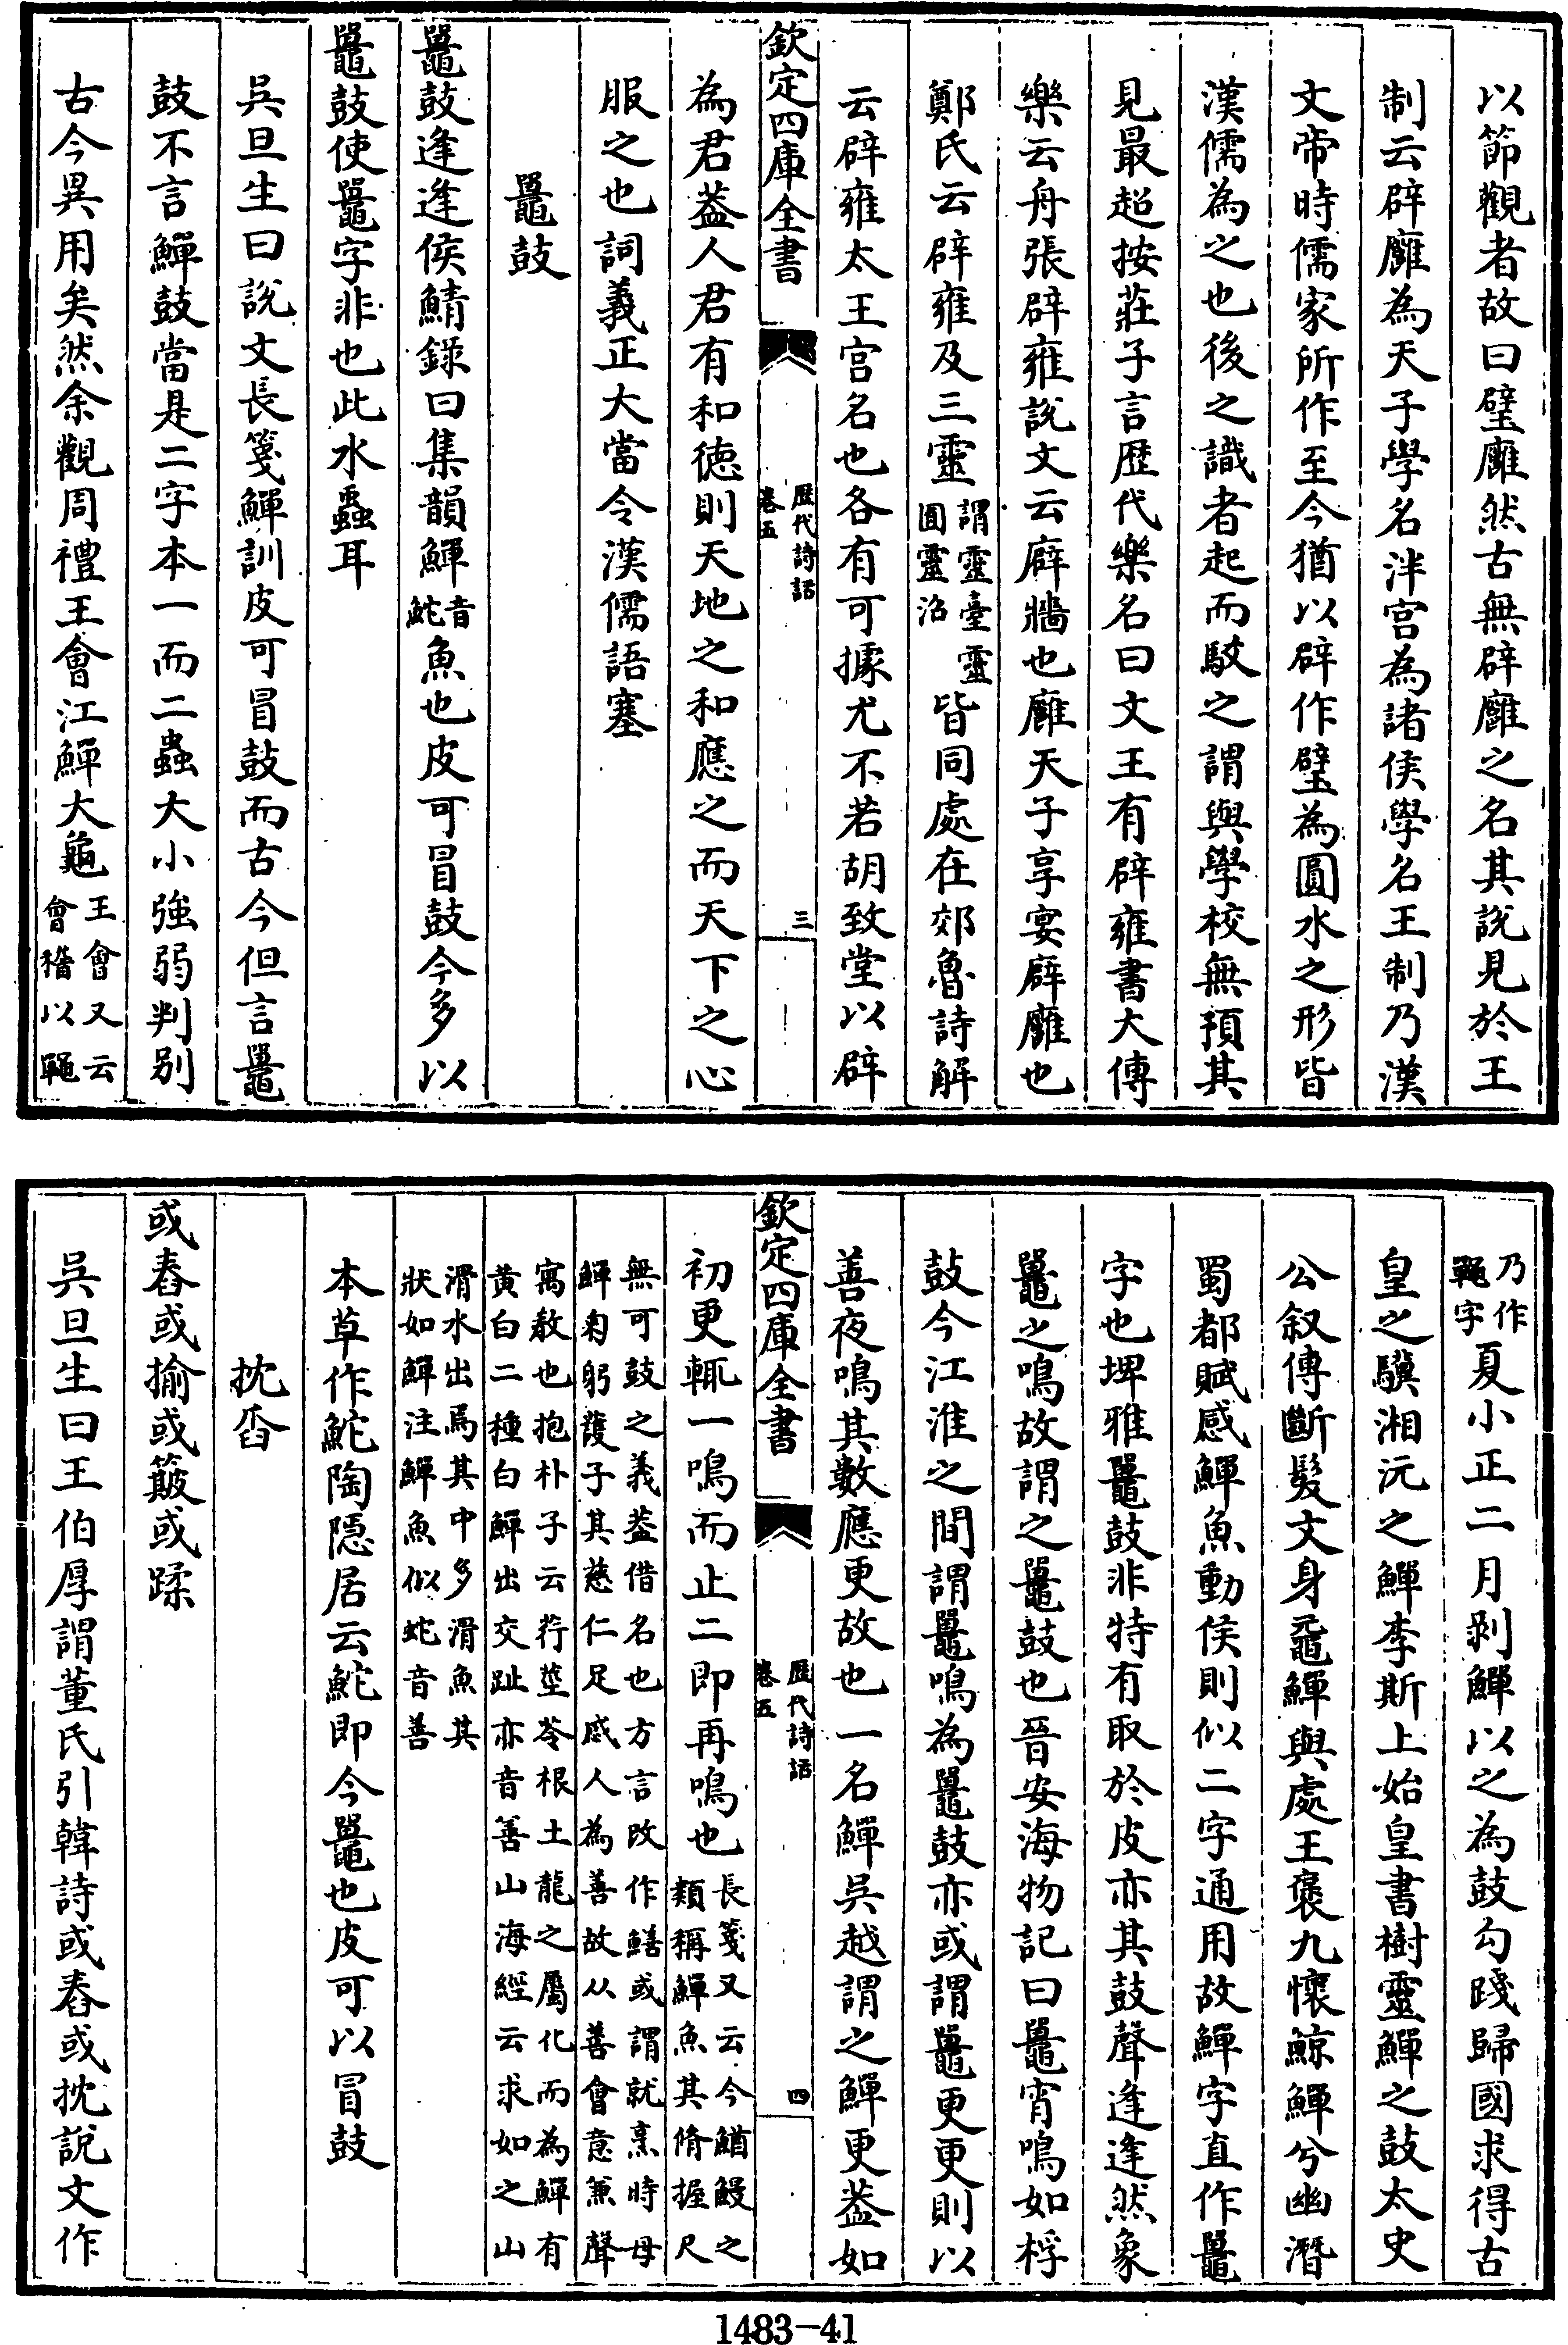 以節觀者故曰璧廱然古無辟廱之名其說見於王
制云辟廱為天子學名泮宫為諸侯學名王制乃漢
文帝時儒家所作至今猶以辟作璧為圓水之形皆
漢儒為之也後之識者起而駮之謂與學校無預其
見最超按莊子言歴代樂名曰文王有辟雍書大傳
樂云舟張辟雍說文云廦牆也廱天子享宴廦廱也
鄭氏云辟雍及三靈謂靈臺靈囿靈沼皆同處在郊魯詩解
云辟雍太王宫名也各有可據尤不若胡致堂以辟
欽定四庫全書 歴代詩話卷五 三
為君葢人君有和徳則天地之和應之而天下之心
服之也詞義正大當令漢儒語塞
鼉鼓
鼉鼓逢逢侯鯖錄曰集韻鱓音鮀魚也皮可冒鼓今多以
鼉鼓使鼉字非也此水蟲耳
吳旦生曰説文長箋鱓訓皮可冒鼓而古今但言鼉
鼓不言鱓鼓當是二字本一而二蟲大小強弱判别
古今異用矣然余觀周禮王會江鱓大龜王會又云會稽以鼉
乃作鼉字夏小正二月剥鱓以之為鼓勾踐歸國求得古
皇之驥湘沅之鱓李斯上始皇書樹靈鱓之鼓太史
公叙傳斷髮文身黿鱓與處王褒九懷鯨鱓兮幽潛
蜀都賦感鱓魚動侯則似二字通用故鱓字直作鼉
字也埤雅鼉鼓非特有取於皮亦其鼓聲逢逢然象
鼉之鳴故謂之鼉鼓也晉安海物記曰鼉宵鳴如桴
鼓今江淮之間謂鼉鳴為鼉鼓亦或謂鼉更更則以
善夜鳴其數應更故也一名鱓吳越謂之鱓更葢如
欽定四庫全書 歴代詩話卷五 四
初更輒一鳴而止二即再鳴也長箋又云今鰌鰻之類稱鱓魚其脩握尺
無可鼓之義葢借名也方言改作鱔或謂就烹時母鱓匑躬護子其慈仁足感人為善故从善會意兼聲
寓赦也抱朴子云荇莖苓根土龍之屬化而為鱓有黄白二種白鱓出交趾亦音善山海經云求如之山
滑水出焉其中多滑魚其狀如鱓注鱓魚似蛇音善
本草作鮀陶隠居云鮀即今鼉也皮可以冒鼓
抌舀
或舂或揄或簸或蹂
吳旦生曰王伯厚謂董氏引韓詩或舂或抌説文作
1483-41